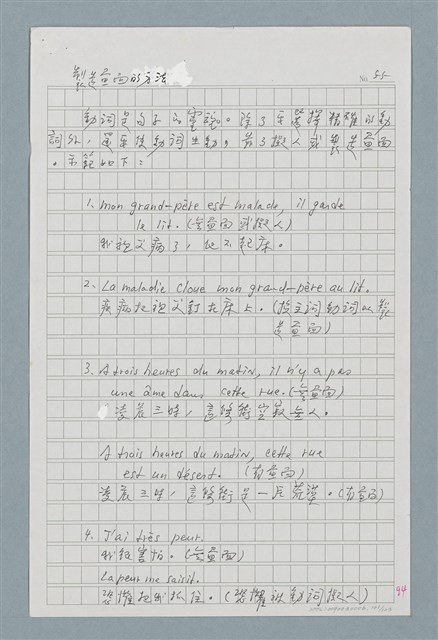 製造畫面的方法
No. 55
動詞是句子的靈魂。除了要選擇精確的動
詞外，還要使動詞生動，為了擬人或製造畫面
。示範如下：
1. Mon grand-père est malade, il garde
le lit. (無畫面或擬人)
我祖父病了，他不起床。
2. La maladie cloue mon grand-père au lit.
疾病把祖父釘在床上。(換主詞動詞以製
造畫面)
3. A trois heures du matin, il n'y a pas
une âme dans cette rue. (無畫面)
凌晨三時，這條街空寂無人。
A trois heures du matin, cette rue
est un désert. (有畫面)
凌晨三時，這條街是一片荒漠。(有畫面)
4. J'ai très peur.
我很害怕。(無畫面)
La peur me saisit.
恐懼把我抓住。(恐懼被動詞擬人)
94